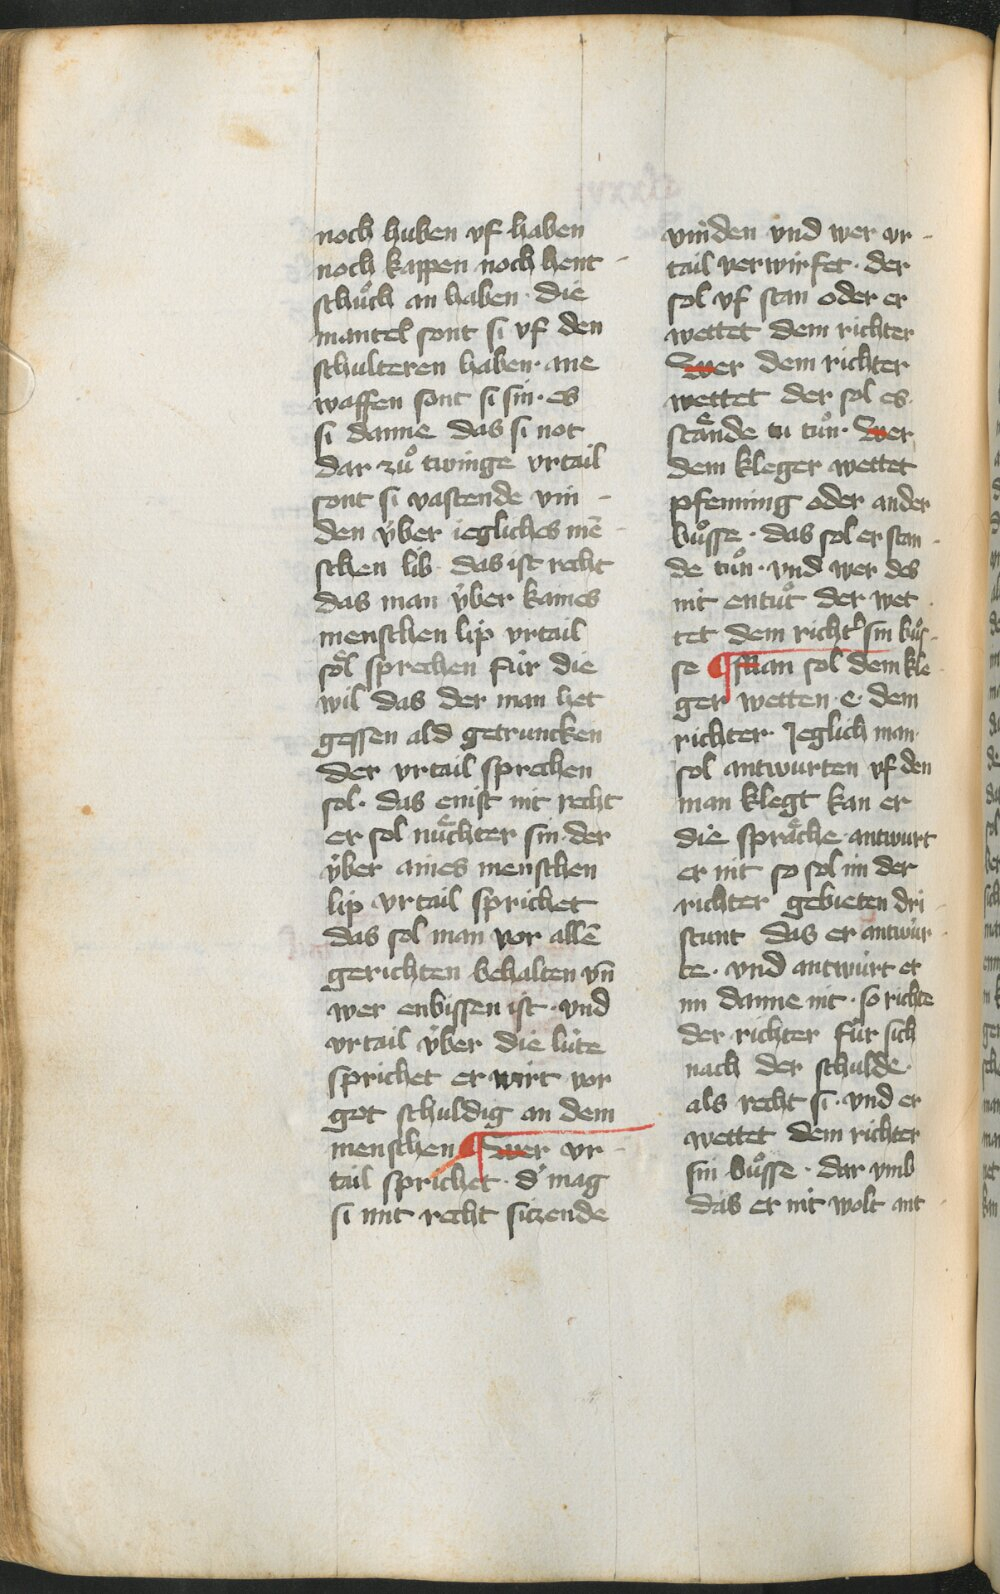 noch huben vf haben
noch kappen noch hent-
schuͦch an haben. die
mantel sont si vf den
schulteren haben. ane
waffen sont si sin. es
si danne das si not
dar zuͦ twinge vrtail
sont si vastende vin-
den v́ber iegliches mē-
schen lib. das ist recht
das man v́ber kaines
menschen lip vrtail
soͤl sprechen fúr die
wil das der man het
gessen ald getruncken
der vrtail sprechen
sol. das enist nit recht
er sol nuͤchter sin. der
v́ber aines menschen
lip vrtail sprichet
das sol man vor allē
gerichten behalten vn̄
wer enbissen ist. vnd
vrtail v́ber die lúte
sprichet er wirt vor
got schuldig an dem
menschen ¶ Wer vr-
tail sprichet. d' mag
si mit recht sitzende
vinden vnd wer vr-
tail verwirfet. der
sol vf stan oder er
wettet dem richter
Wer dem richter
wettet der sol es.
staͤnde tu tuͦn. Wer
dem kleger wettet
pfenning oder ander
buͦsse. das sol er stan-
de tuͦn. vnd wer des
nit entuͦt der wet-
tet dem richt' sin buͦs-
se ¶ Man sol dem kle-
ger wetten. e. dem
richter Jeglich man
sol antwurten vf den
man klegt kan er
die spraͤche. antwurt
er nit so sol im der
richter gebieten dri-
stunt das er antwúr-
te. vnd antwúrt er
im danne nit. so richte
der richter fúr sich
nach der schulde.
als recht si. vnd er
wettet dem richter
sin buͦsse. dar vmb
das er nit wolt ant-